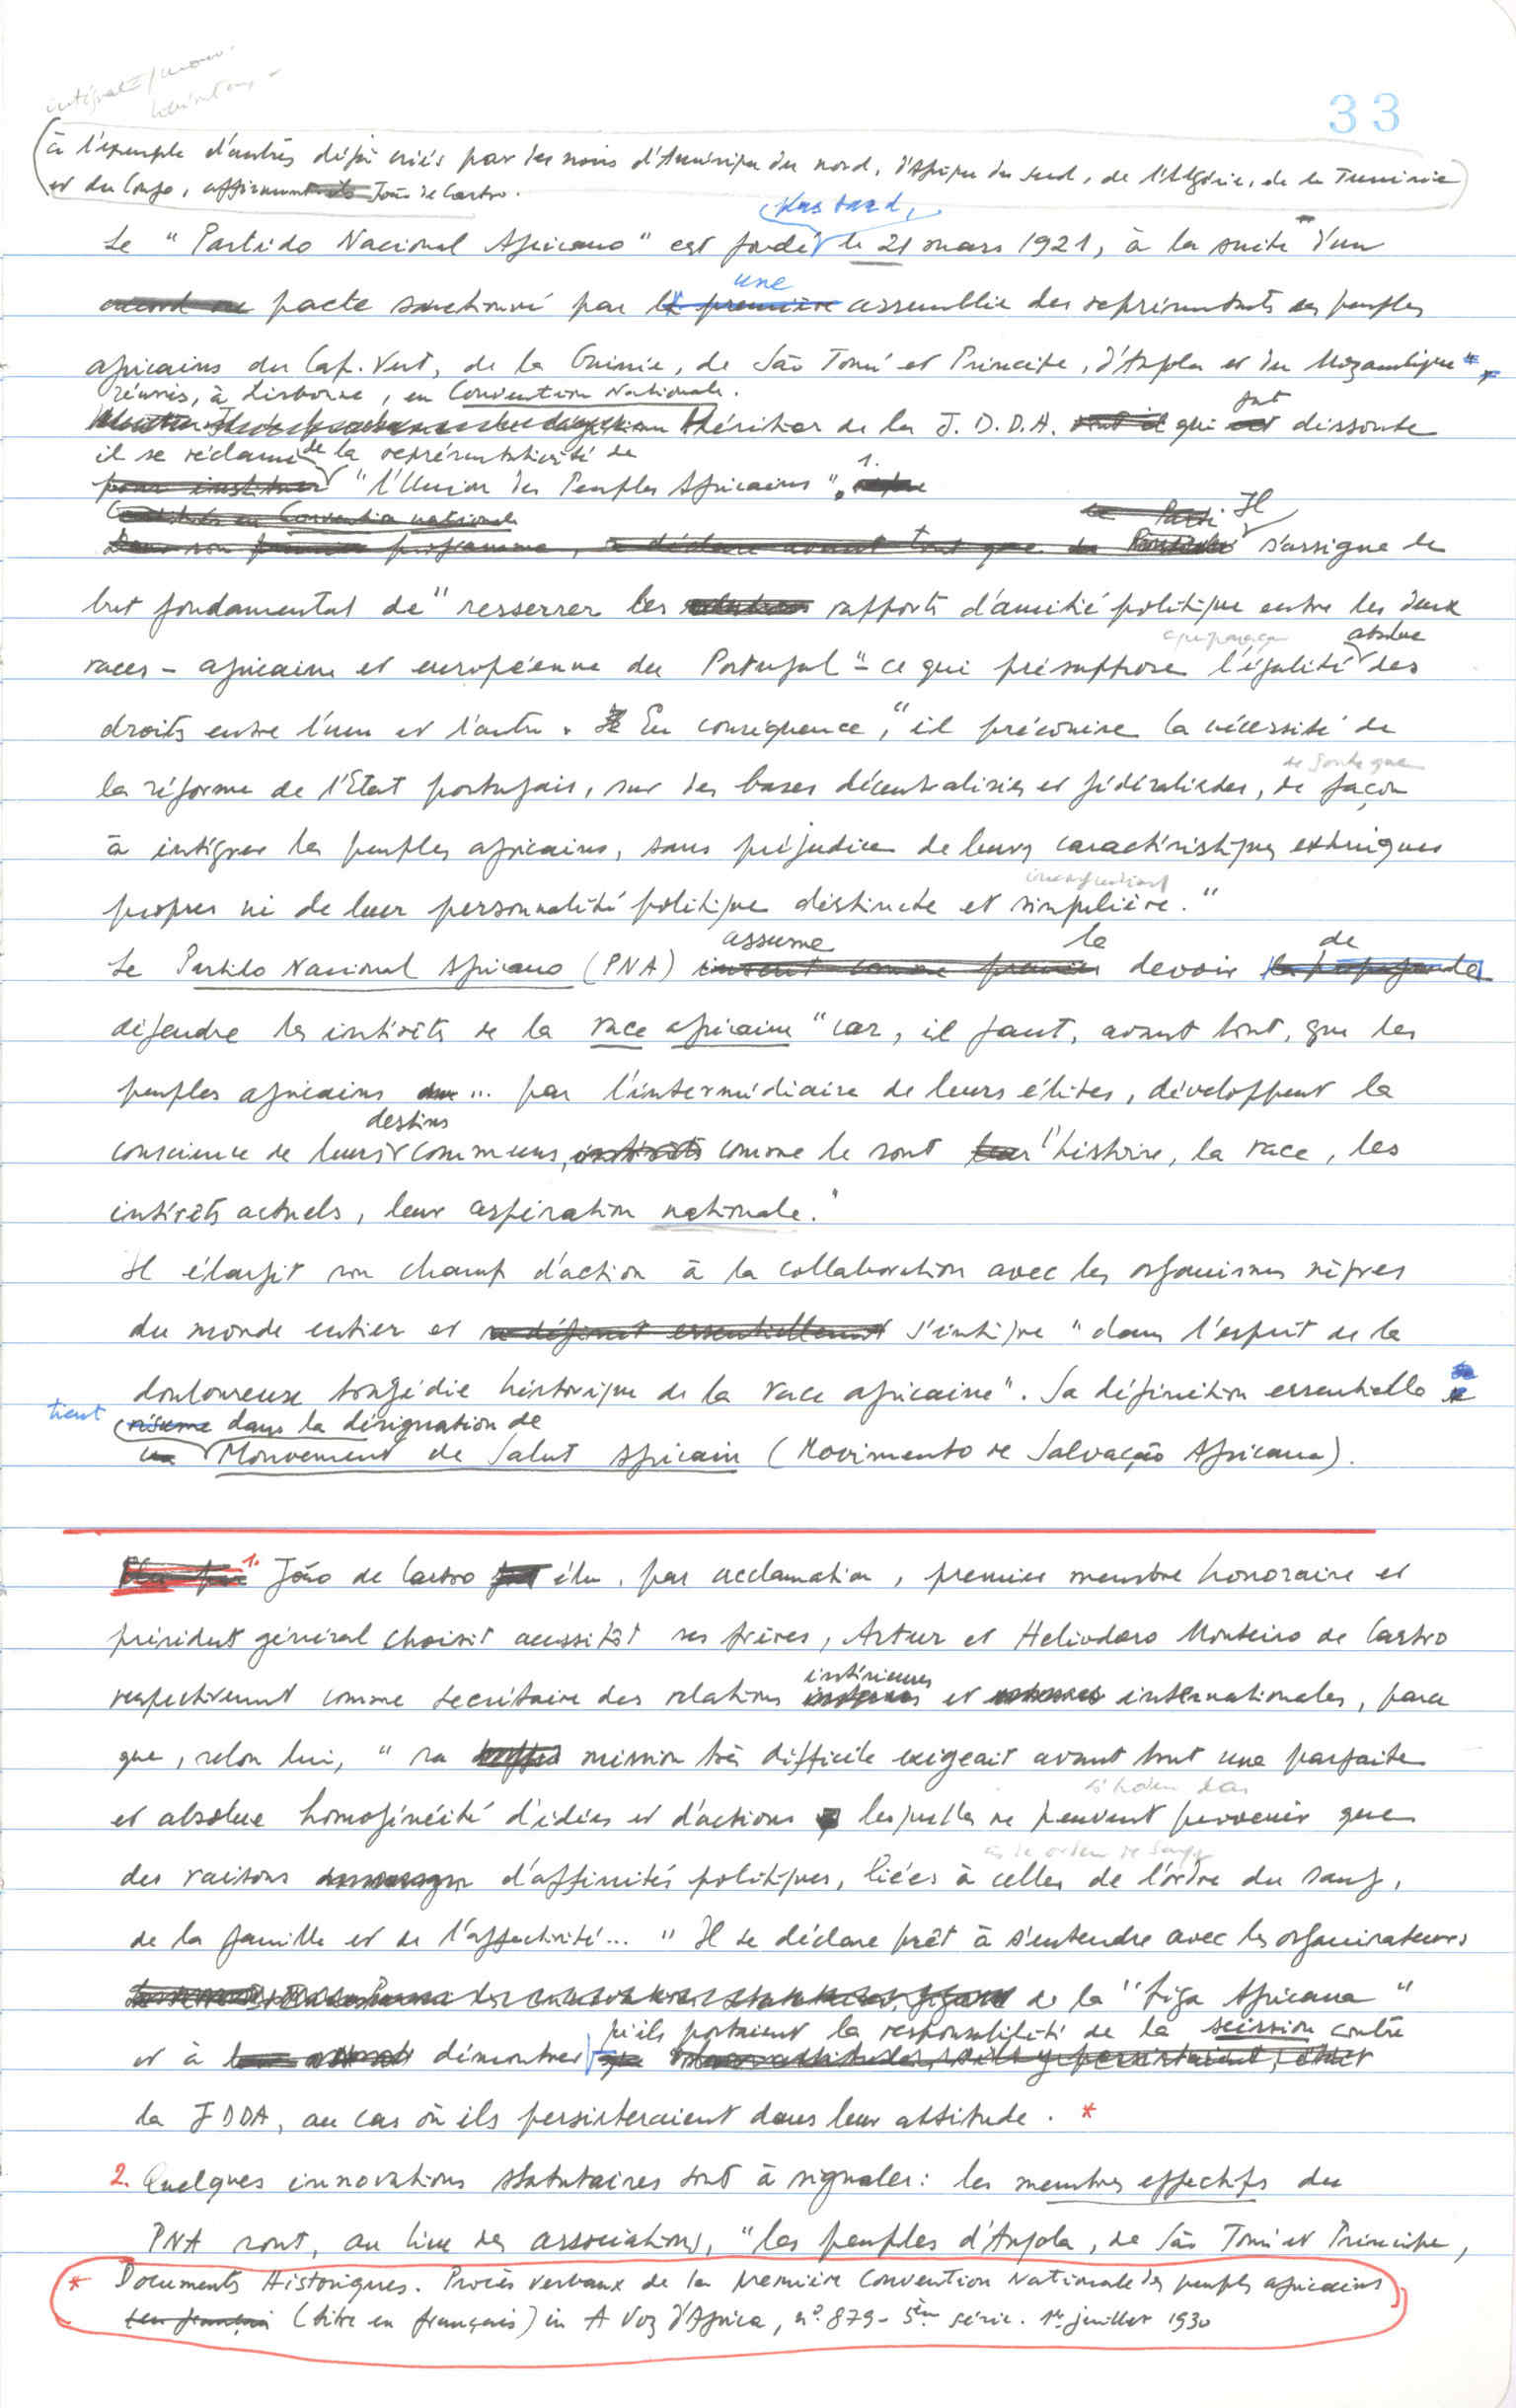 33
(à l'exemple d'autres déjà créés par les noirs d'Amérique du nord, d'Afrique du Sud, de l'Algérie, de la Tunisie
et du Congo, affirment João de Castro.)
plus tard,
Le "Partido Nacional Africano" est fondé le 21 mars 1921, à la suite d'un
une
pacte sanctionné par la première assemblée des représentants des peuples
africains du Cap-Vert, de la Guinée, de São Tomé et Principe, d'Angola et du Mozambique",
réunis, à Lisbonne, en Convention Nationale.
fut
héritier de la J.D.D.A. qui est dissoute
il se réclame de la représentativité de
pour instituer "l'Union des Peuples Africains". 1.
Constitués en Convention nationale
le Parti Il
Dans son premier programme, il déclare avant tout que s'assigne le
but fondamental de "resserrer les rapports d'amitié politique entre les deux
absolue
races - africaine et européenne du Portugal" - ce qui présuppose l'égalité des
droits entre l'une et l'autre. En conséquence, "il préconise la nécessité de
de sorte que
la réforme de l'Etat portugais, sur des bases décentralisées et fédéralistes, de façon
à intégrer les peuples africains, sans préjudice de leurs caractéristiques ethniques
propres ni de leur personnalité politique distincte et singulière."
assume le de
Le Partido Nacional Africano (PNA) devoir la propagande
défendre les intérêts de la race africaine "car, il faut, avant tout, que les
peuples africains ... par l'intermédiaire de leurs élites, développent la
destins
conscience de leurs communs, intérêts comme le sont leur l'histoire, la race, les
intérêts actuels, leur aspiration nationale."
Il élargit son champ d'action à la collaboration avec les organismes nègres
du monde entier et se définit essentiellement s'intègre "dans l'esprit de la
douloureuse tragédie historique de la race africaine". Sa définition essentielle se
tient résume dans la désignation de
un Mouvement de Salut Africain (Movimento de Salvação Africana).
Elu par 1. João de Castro fut élu, par acclamation, premier membre honoraire et
président général choisit aussitôt ses frères, Artur et Heliodoro Monteiro de Castro
intérieures
respectivement comme secrétaire des relations internes et externes internationales, parce
que, selon lui, "sa mission très difficile exigeait avant tout une parfaite
et absolue homogénéité d'idées et d'actions lesquelles ne peuvent provenir que
des raisons d'affinités politiques, liées à celles de l'ordre du sang,
de la famille et de l'affectivité..." Il se déclare prêt à s'entendre avec les organisateurs
de la "Liga Africana"
qu'ils portaient la responsabilité de la scission contre
et à démontrer que
la JDDA, au cas où ils persisteraient dans leur attitude. *
2. Quelques innovations statutaires sont à signaler: les membres effectifs du
PNA sont, au lieu des associations, "les peuples d'Angola, de São Tomé et Principe,
* Documents Historiques. Procès verbaux de la première Convention Nationale des peuples africains
(en français) (titre en français) in A Voz d'Africa, nº. 879 - 5ème série. 1er juillet 1930